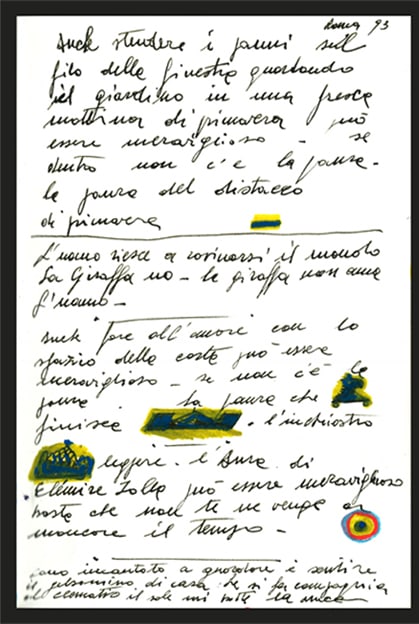 Roma 93
Anche stendere i panni sul
filo della finestra guardando
il giardino in una fresca
mattina di primavera può
essere meraviglioso - se
dentro non c'è la paura -
la paura del distacco
di primavera
L'uomo riesce a rovinarsi il mondo
La Giraffa no - la giraffa non ama
l'uomo -
Anche "fare all'amore" con lo
spazio della carta può essere
meraviglioso - se non c'è la
paura - la paura che
finisca . l'inchiostro
leggere . l'Aura di
Elémire Zolla può essere meraviglioso
basta che non te ne venga a
mancare il tempo -
sono incantato a guardare e sentire
il gelsomino di casa che si fa compagnia
al clematis il sole mi la